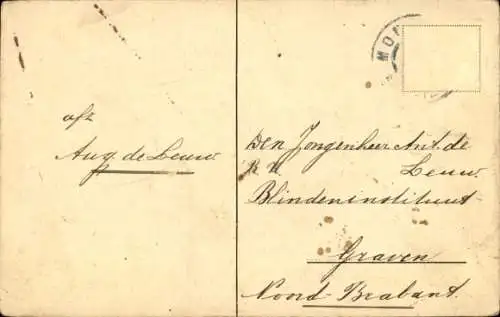 afz
Aug. de Leeuw
MON
Den Jongenheer Ant. de
Leeuw
R K
Blindeninstituut
Graven
Noord Brabant.